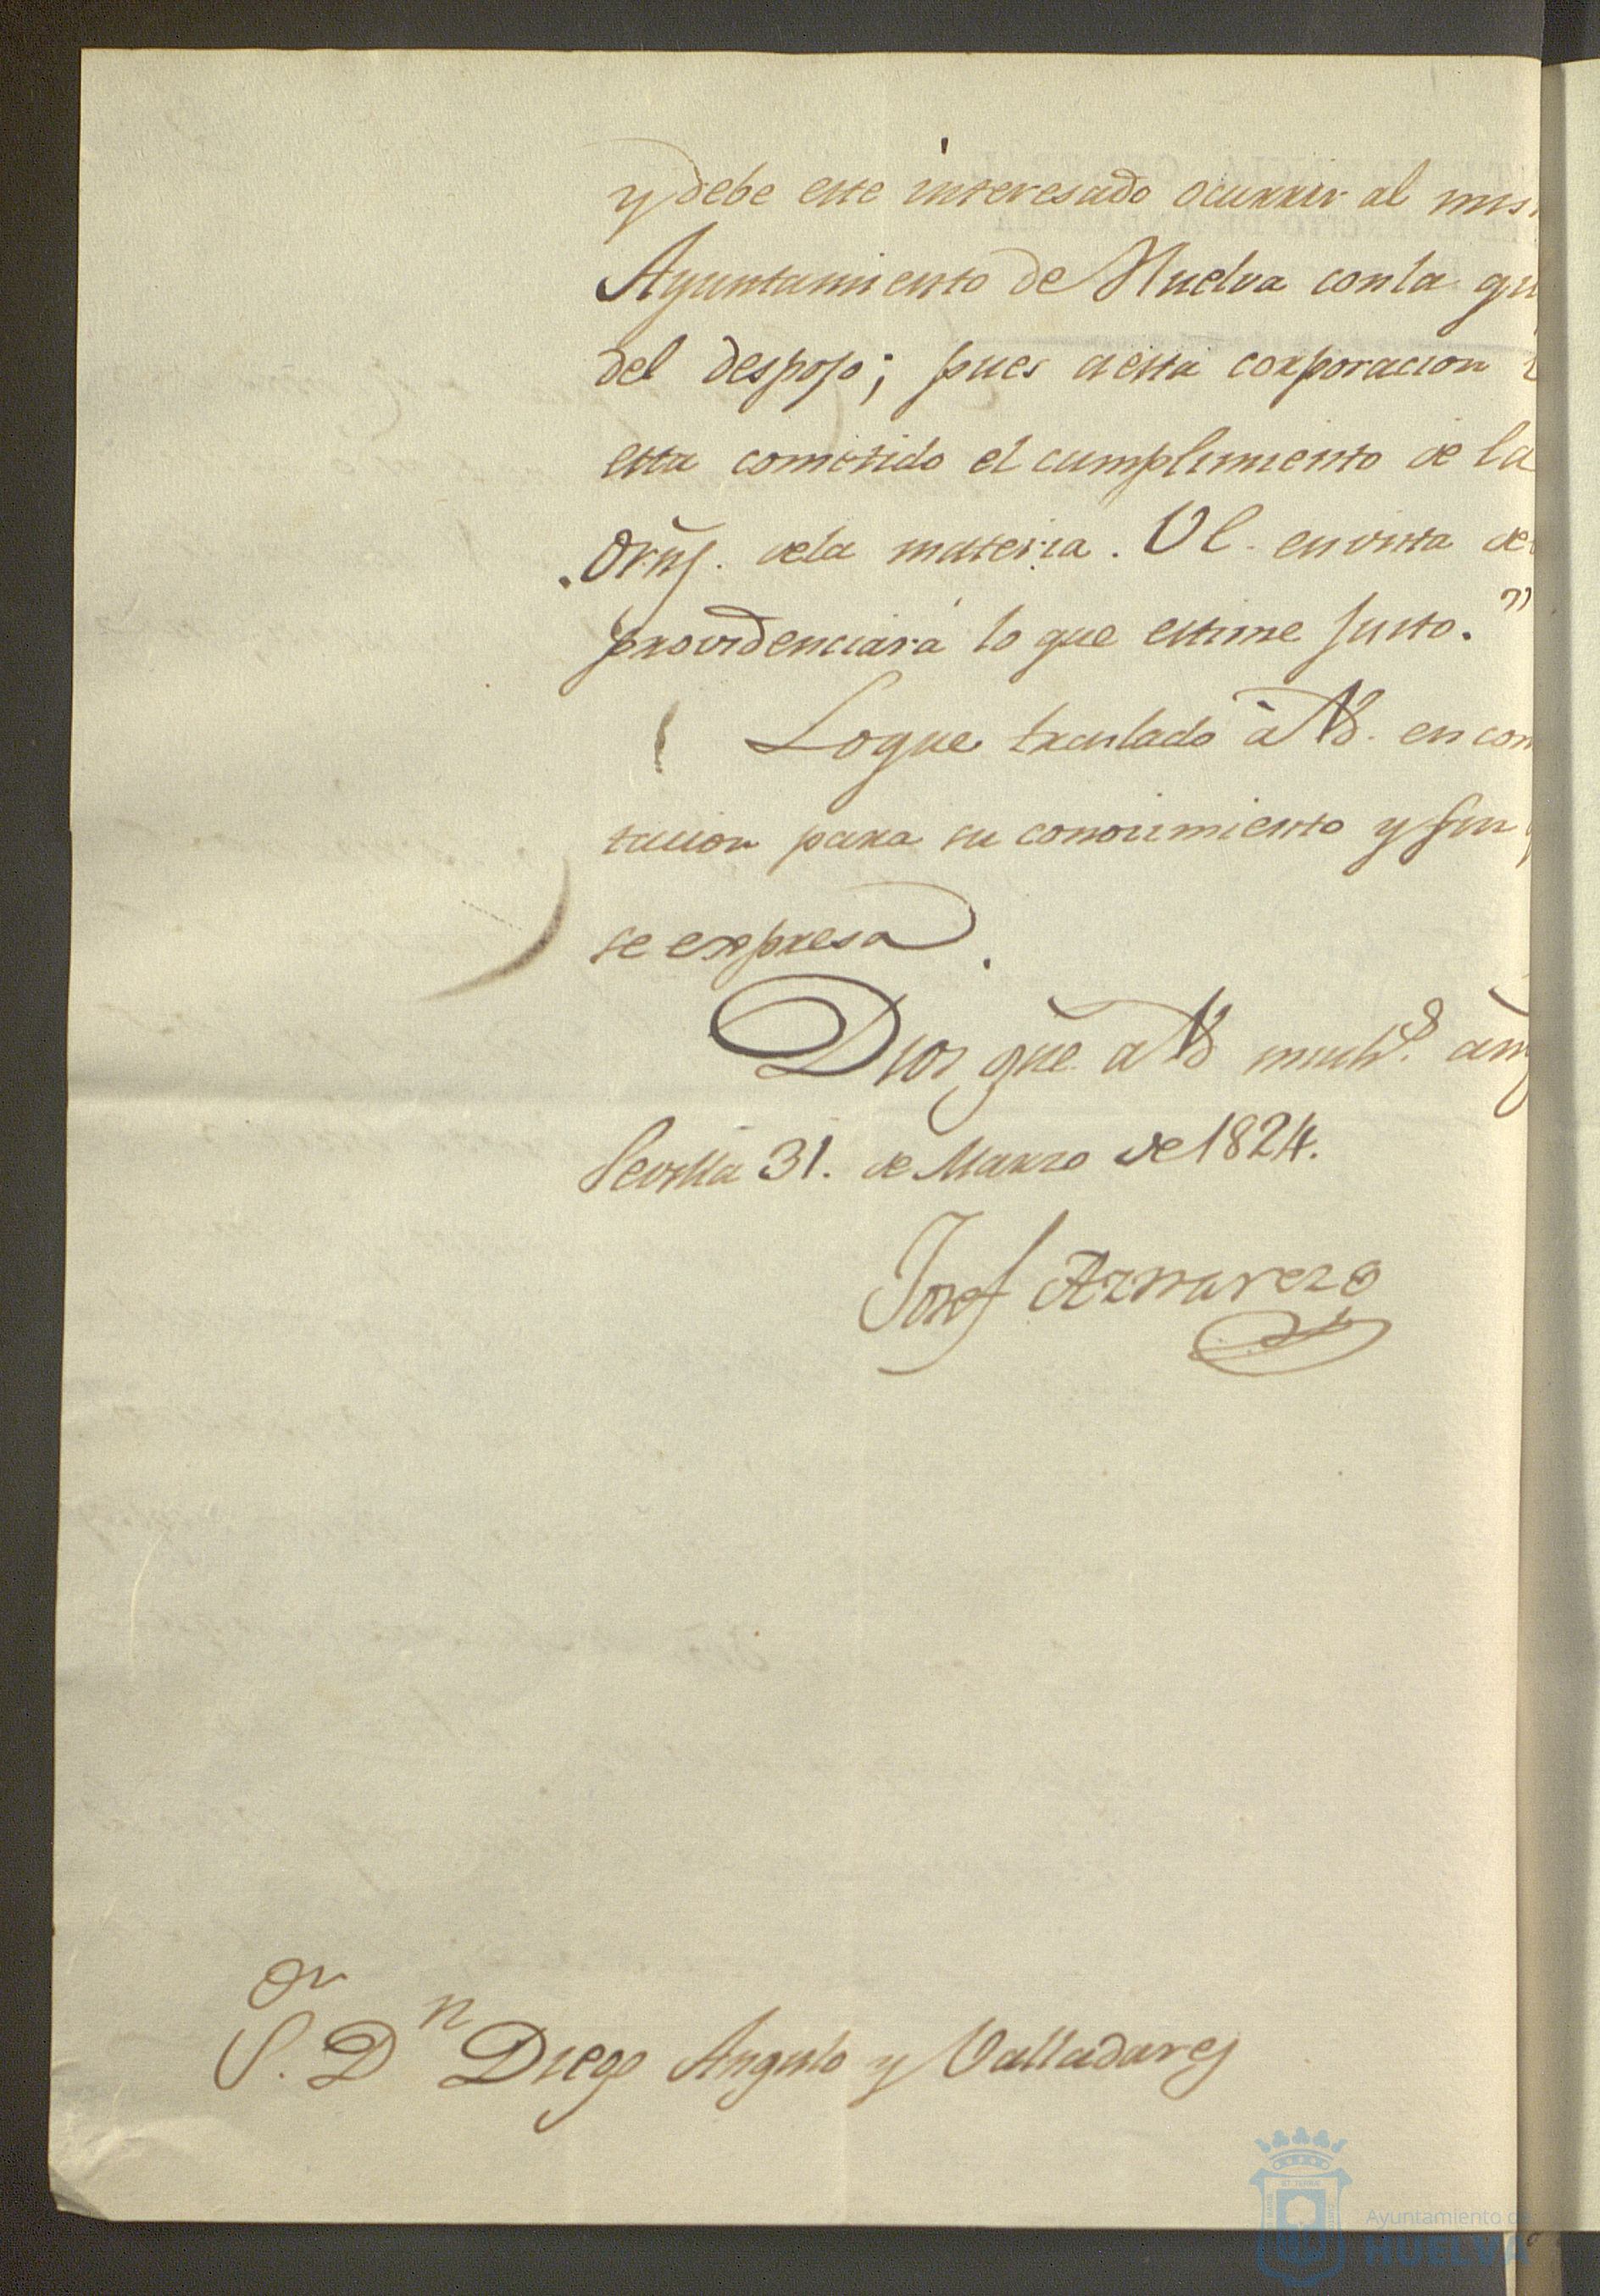 y debe este interesado ocurrir al mis
Ayuntamiento de Huelva con la qu
del despojo; pues a esta corporacion
esta cometido el cumplimiento de la
Orns. de la materia. VE. en vista de
providenciará lo que estime justo."
Lo que traslado à VS. en con
tacion para su conocimiento y fin
se expresa.
Dios gūe. a VS muchs. añs
Sevilla 31. de Marzo de 1824.
Josef Aznarez
Sor. Dn Diego Angulo y Valladares
Ayuntamiento de
HUELVA